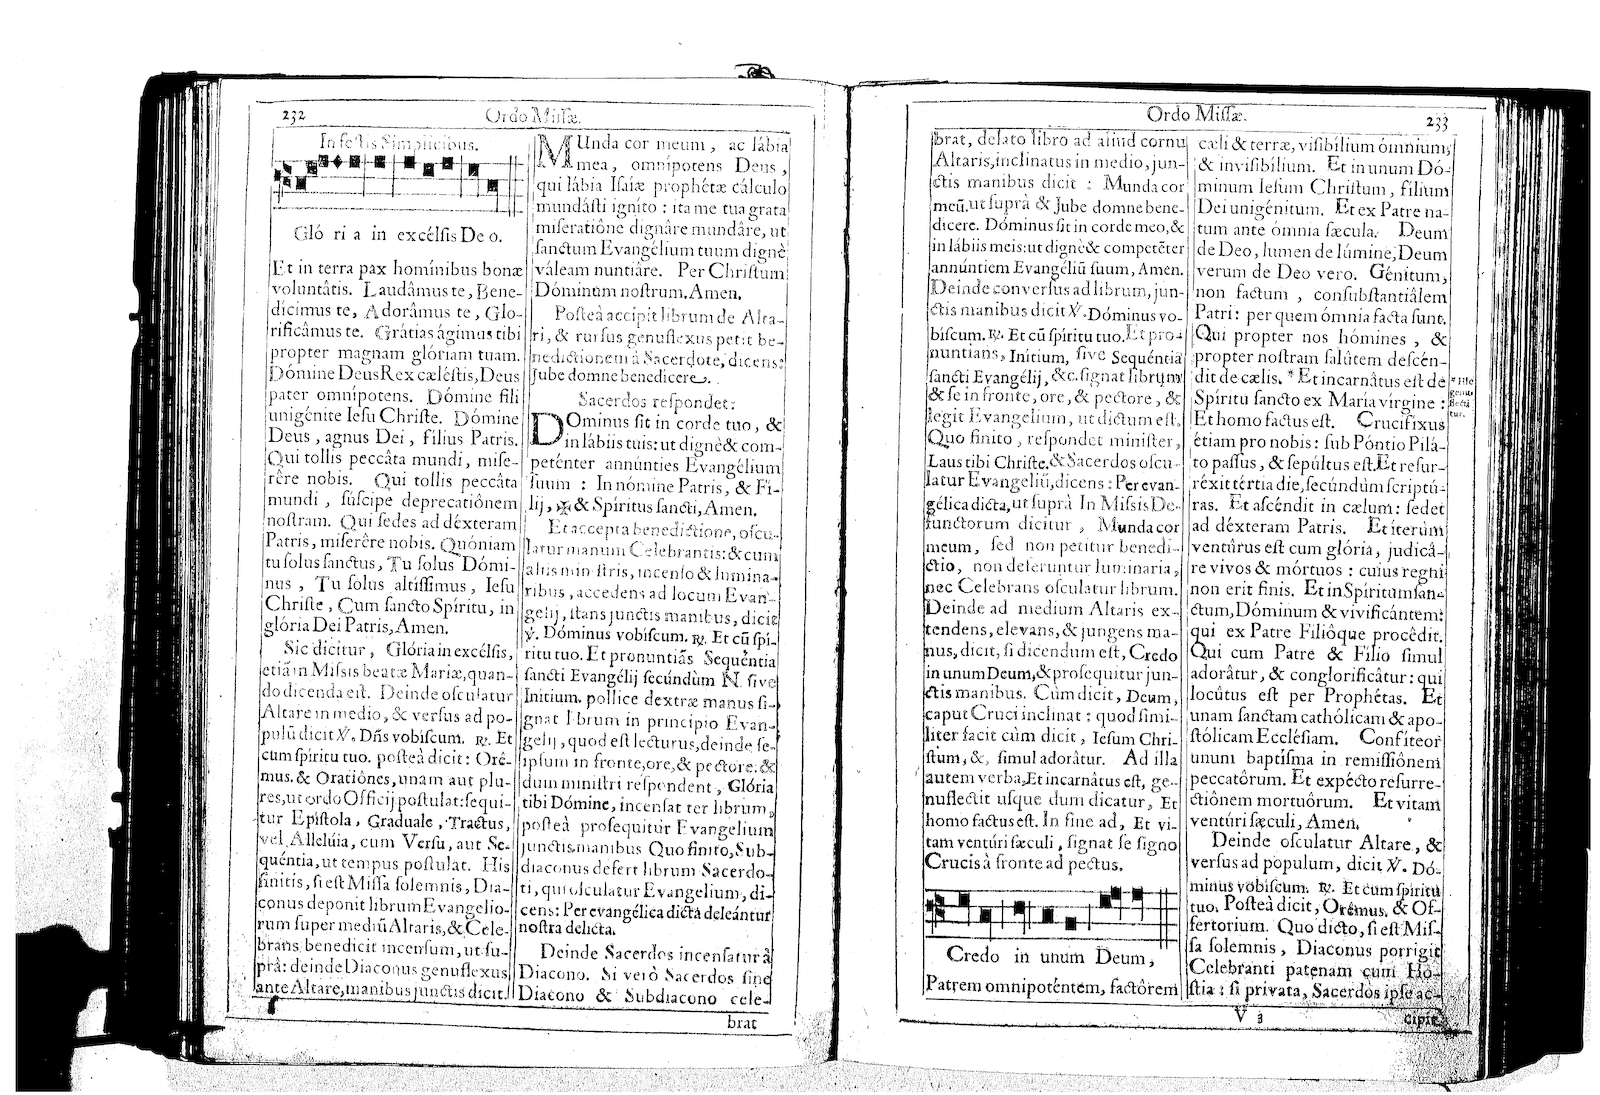 232
Ordo Missæ.
In festis Simplicibus.
Gló ri a in excélsis De o.
Et in terra pax homínibus bonæ
voluntâtis. Laudâmus te, Bene-
dícimus te, Adorâmus te, Glo-
rificâmus te. Grátias ágimus tibi
propter magnam glóriam tuam.
Dómine Deus Rex cæléstis, Deus
pater omnípotens. Dómine fili
unigénite Iesu Christe. Dómine
Deus, agnus Dei, fílius Patris.
Qui tollis peccâta mundi, mise-
rêre nobis. Qui tollis peccâta
mundi, súscipe deprecatiônem
nostram. Qui sedes ad déxteram
Patris, miserêre nobis. Quóniam
tu solus sanctus, Tu solus Dómi-
nus, Tu solus altíssimus, Iesu
Christe, Cum sancto Spíritu, in
glória Dei Patris, Amen.
Sic dicitur, Glória in excélsis,
etiã in Missis beatæ Mariæ, quan-
do dicenda est. Deinde osculatur
Altare in medio, & versus ad po-
pulũ dicit ℣. Dñs vobiscum. ℟. Et
cum spíritu tuo. posteà dicit: Oré-
mus. & Oratiónes, unam aut plu-
res, ut ordo Officij postulat: sequi-
tur Epistola, Graduale, Tractus,
vel Alleluia, cum Versu, aut Se-
quéntia, ut tempus postulat. His
finitis, si est Missa solemnis, Dia-
conus deponit librum Evangelio-
rum super mediũ Altaris, & Cele-
brans benedicit incensum, ut su-
prà: deinde Diaconus genuflexus
ante Altare, manibus junctis dicit.
MUnda cor meum, ac lábia
mea, omnípotens Deus,
qui lábia Isaíæ prophétæ cálculo
mundásti ignito: ita me tua grata
miseratiône dignâre mundâre, ut
sanctum Evangélium tuum dignè
váleam nuntiáre. Per Christum
Dóminum nostrum. Amen.
Posteà accipit librum de Alta-
ri, & rursus genuflexus petit be-
nedictionem à Sacerdote, dicens:
Jube domne benedicere.
Sacerdos respondet:
DOminus sit in corde tuo, &
in lábiis tuis: ut dignè & com-
peténter annúnties Evangélium
suum: In nómine Patris, & Fí-
lij, ✠ & Spíritus sancti, Amen.
Et accepta benedictione, oscu-
latur manum Celebrantis: & cum
aliis ministris, incenso & lumina-
ribus, accedens ad locum Evan-
gelij, stans junctis manibus, dicit
℣. Dóminus vobiscum. ℟. Et cũ spí-
ritu tuo. Et pronuntiãs Sequéntia
sancti Evangélij secúndùm N. sive
Initium. pollice dextræ manus si-
gnat librum in principio Evan-
gelij, quod est lecturus, deinde se-
ipsum in fronte, ore, & pectore: &
dum ministri respondent, Glória
tibi Dómine, incensat ter librum,
posteà prosequitur Evangelium
junctis manibus Quo finito, Sub-
diaconus defert librum Sacerdo-
ti, qui osculatur Evangelium, di-
cens: Per evangélica dicta deleántur
nostra delicta.
Deinde Sacerdos incensatur à
Diacono. Si verò Sacerdos sine
Diacono & Subdiacono cele-
brat
Ordo Missæ.
233
brat, delato libro ad aliud cornu
Altaris, inclinatus in medio, jun-
ctis manibus dicit: Munda cor
meũ, ut suprà & Jube domne bene-
dicere. Dóminus sit in corde meo, &
in lábiis meis: ut dignè & competẽter
annúntiem Evangéliũ suum, Amen.
Deinde conversus ad librum, jun-
ctis manibus dicit ℣. Dóminus vo-
biscum. ℟. Et cũ spíritu tuo. Et pro-
nuntians, Initium, sive Sequéntia
sancti Evangélij, &c. signat librum
& se in fronte, ore, & pectore, &
legit Evangelium, ut dictum est.
Quo finito, respondet minister,
Laus tibi Christe. & Sacerdos oscu-
latur Evangeliũ, dicens: Per evan-
gélica dicta, ut suprà In Missis De-
functorum dicitur, Munda cor
meum, sed non petitur benedi-
ctio, non deferuntur luminaria,
nec Celebrans osculatur librum.
Deinde ad medium Altaris ex-
tendens, elevans, & jungens ma-
nus, dicit, si dicendum est, Credo
in unum Deum, & prosequitur jun-
ctis manibus. Cùm dicit, Deum,
caput Cruci inclinat: quod simi-
liter facit cùm dicit, Iesum Chri-
stum, &, simul adorátur. Ad illa
autem verba, Et incarnâtus est, ge-
nuflectit usque dum dicatur, Et
homo factus est. In fine ad, Et vi-
tam ventúri sæculi, signat se signo
Crucis à fronte ad pectus.
Credo in unum Deum,
Patrem omnipoténtem, factôrem
cæli & terræ, visibílium ómnium,
& invisibílium. Et in unum Dó-
minum Iesum Christum, filium
Dei unigénitum. Et ex Patre na-
tum ante ómnia sæcula. Deum
de Deo, lumen de lúmine, Deum
verum de Deo vero. Génitum,
non factum, consubstantiâlem
Patri: per quem ómnia facta sunt.
Qui propter nos hómines, &
propter nostram salûtem descén-
dit de cælis. * Et incarnâtus est de
Spíritu sancto ex María vírgine:
Et homo factus est. Crucifíxus
étiam pro nobis: sub Póntio Pilá-
to passus, & sepúltus est. Et resur-
réxit tértia die, secúndùm scriptú-
ras. Et ascéndit in cælum: sedet
ad déxteram Patris. Et íterùm
ventûrus est cum glória, judicá-
re vivos & mórtuos: cuius regni
non erit finis. Et in Spíritum san-
ctum, Dóminum & vivificántem:
qui ex Patre Filiôque procêdit.
Qui cum Patre & Filio simul
adorátur, & conglorificátur: qui
locûtus est per Prophétas. Et
unam sanctam cathólicam & apo-
stólicam Ecclésiam. Confíteor
unum baptísma in remissiônem
peccatôrum. Et expécto resurre-
ctiônem mortuôrum. Et vitam
ventúri sæculi, Amen.
Deinde osculatur Altare, &
versus ad populum, dicit ℣. Dó-
minus vobiscum. ℟. Et cum spíritu
tuo. Posteà dicit, Orêmus. & Of-
fertorium. Quo dicto, si est Mis-
sa solemnis, Diaconus porrigit
Celebranti patenam cum Ho-
stia: si privata, Sacerdos ipse ac-
* Hîc
genu
flecti
tur.
V 3
cipit